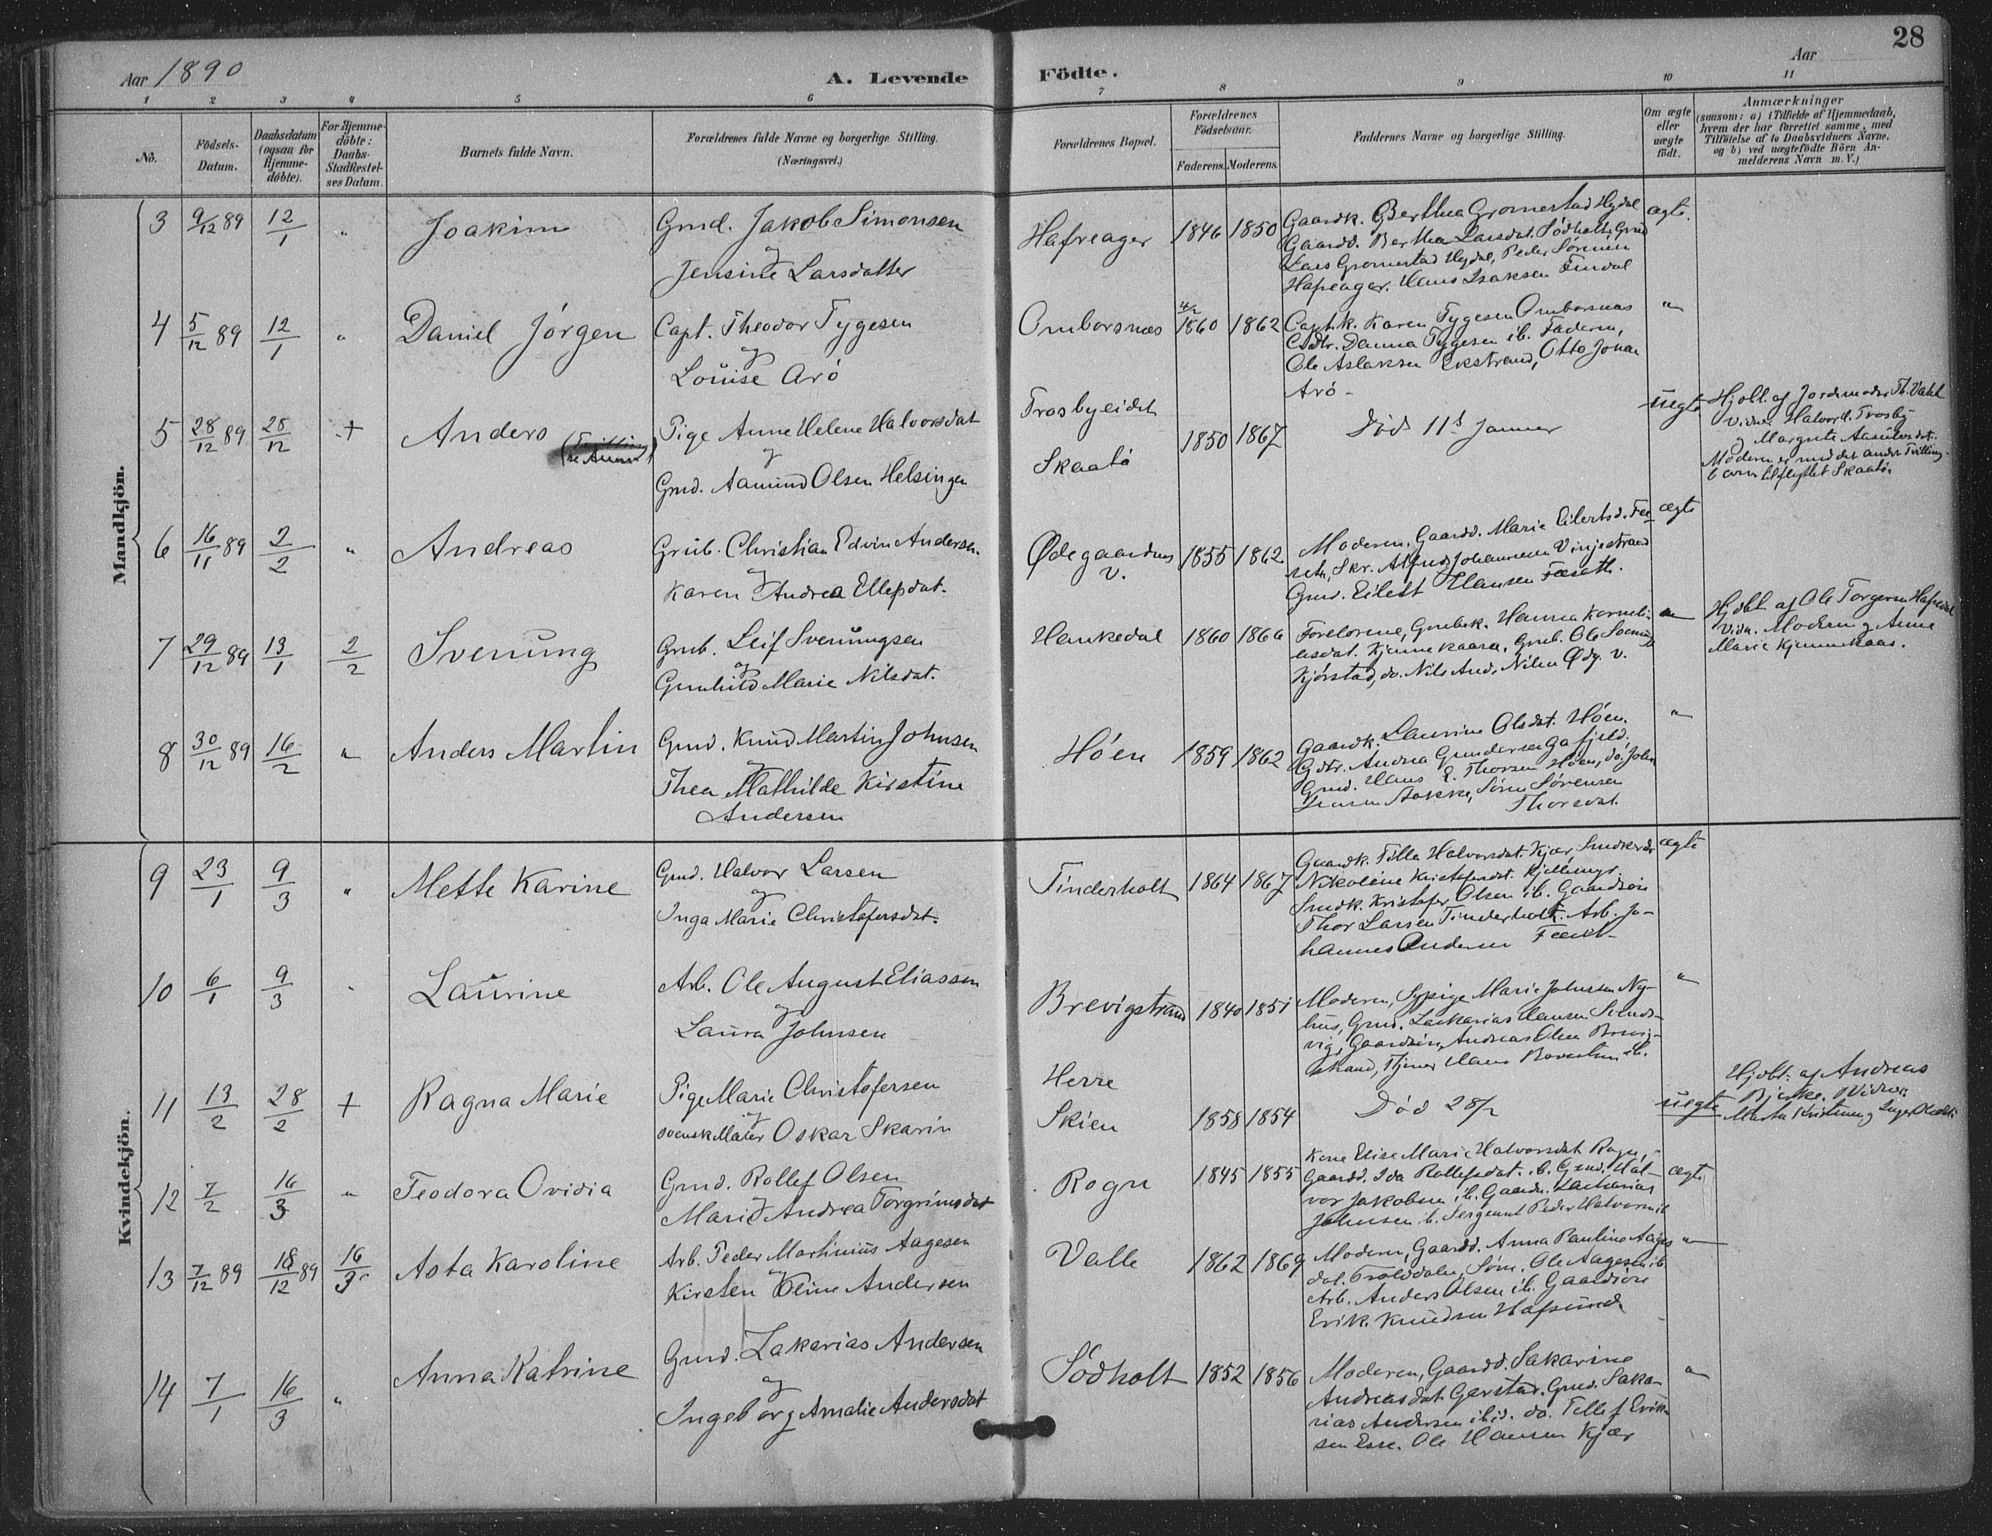 28
Aar 1890
A. Levende Födte.
Aar
1 2 3 4 5 6 7 8 9 10 11
No.
Födsels-Datum.
Daabsdatum (ogsaa for Hjemme-döbte).
For Hjemme-döbte: Daabs-Stadfæstel-ses Datum.
Barnets fulde Navn.
Forældrenes fulde Navne og borgerlige Stilling.
(Næringsvei.)
Forældrenes Bopæl.
Forældrenes Födselsaar.
Faderens. Moderens.
Faddernes Navne og borgerlige Stilling.
Om ægte eller uægte födt.
Anmærkninger
(saasom: a) i Tilfælde af Hjemmedaab, hvem der har forrettet samme, med Tilföielse af to Daabsvidners Navne, og b) ved uægtefödte Börn An-melderens Navn m. V.)
Mandkjön.
3 9/12 89 12/1 " Joakim
Gmd. Jakob Simonsen
og
Jensine Larsdatter
Hafreager 1846 1850
Gaardk. Berthea Gromestad Hydal
Gaardd. Berthea Larsdat. Södholt, Gmd
Lars Gromestad Hydal, Peder Sörensen
Hafreager. Hans Isaksen Findal
ægte.
4 5/12 89 12/1 " Daniel Jörgen
Capt. Theodor Tygesen
og
Louise Arö
Omborsnæs 1860 1862
Captk. Karen Tygesen Omborsnæs
Danna Tygesen ib. Faderen,
Ole Aslaksen Ekstrand, Otto Johan
Arö -
"
5 28/12 89 28/12 + Anders
Pige Anne Helene Halvorsdat
og
Gmd. Aamund Olsen Helsingen
Trosbyeidet
Skaatö
1850 1867
Död 11te Januar
uægte
Hjdbt. af Jordmoder Th. Vahl
Vidner Halvor Trosby
og Margrete Aasulvsdat.
Moderen er med det andet Tvilling-
barn tilflyttet Skaatö.
6 16/11 89 2/2 " Andreas
Grub. Christian Edvin Andersen
og
Karen Andrea Ellefsdat.
Ødegaarden V. 1855 1862
Moderen. Gaardd. Marie Eilertsd. Fæ-
seth, Skr. Alfred Johannesen Vinjestrand
Gmd. Eilert Hansen Fæseth.
ægte
7 29/12 89 13/1 2/2 Sverung
Grub. Leif Sverungsen
og
Gunhild Marie Nilsdat.
Hankedal 1860 1866
Forældrene, Grubek. Hanna Korneli-
usdat. Kjennekaasa, Grub. Ole
Kjörstad, do. Nils And. Nilsen Ødg. V.
"
Hjdbt. af Ole Torgersen Hafredal
Vidn. Moderen og Anne
Marie Kjennekaas.
8 30/12 89 16/2 " Anders Martin
Gmd. Knud Martin Johnsen
og
Thea Mathilde Kirstine
Andersen
Höen 1859 1862
Gaardk. Laurine Olsdat. Höen.
Gdtr. Andrea Gundersen
Gmd. Hans E. Thorsen Höen, do. John
Jensen Stokke, Sörn Sörensen
Thorsdal.
"
Kvindekjön.
9 23/1 9/3 " Mette Karine
Gmd. Halvor Larsen
og
Inga Marie Christofersdat.
Tinderholt 1864 1867
Gaardk. Tilla Halvorsdat. Kjær,
Nikoline Kristofersdat.
Smdk. Kristofer Olsen ib. Gaardsön
Thor Larsen Tinderholt. Arb. Jo-
hannes Andersen
ægte
10 6/1 9/3 " Laurine
Arb. Ole August Eliassen
og
Laura Johnsen
Brevigstrand 1840 1851
Moderen, Sypige Marie Johnsen Ny-
hus, Gmd. Zackarias Hansen
vig, Gaardsön Andreas Olsen Brevig-
strand, Tjener Hans ib.
"
11 13/2 28/2 + Ragna Marie
Pige Marie Christofersen
og
svensk Maler Oskar Skarin
Herre
Skien
1858 1854
Död 28/2
uægte
Hjdbt. af Andreas
Bjerke. Vidner:
Marta Kristensen og Inger
12 7/2 16/3 " Teodora Ovidia
Gmd. Rollef Olsen
og
Marie Andrea Torgrimsdat
Rogn 1845 1855
Kone Elise Marie Halvorsdat Rogn,
Gaardd. Ida Rollefsdat. ib. Gmd. Hal-
vor Jakobsen ib. Gaardm. Zacharias
Johnsen ib. Sergeant Peder Halvorsen ib
ægte
13 7/12 89 18/12 89 16/3 Asta Karoline
Arb. Peder Martinius Aagesen
og
Kirsten Oline Andersen
Valle 1862 1869
Moderen, Gaardd. Anna Pauline Aages
dat. Trolddalen, Söm. Ole Aagesen ib
Arb. Anders Olsen ib. Gaardsön
Erik Knudsen Hafsund
"
14 7/1 16/3 " Anna Katrine
Gmd. Zakarias Andersen
og
Ingeborg Amalie Andersdat
Södholt 1852 1856
Moderen, Gaardd. Sakarine
Andreasdat Garstad. Gmd. Saka-
rias Andersen ibid. do. Tellef Erik-
sen Esse. Ole Hansen Kjær
"